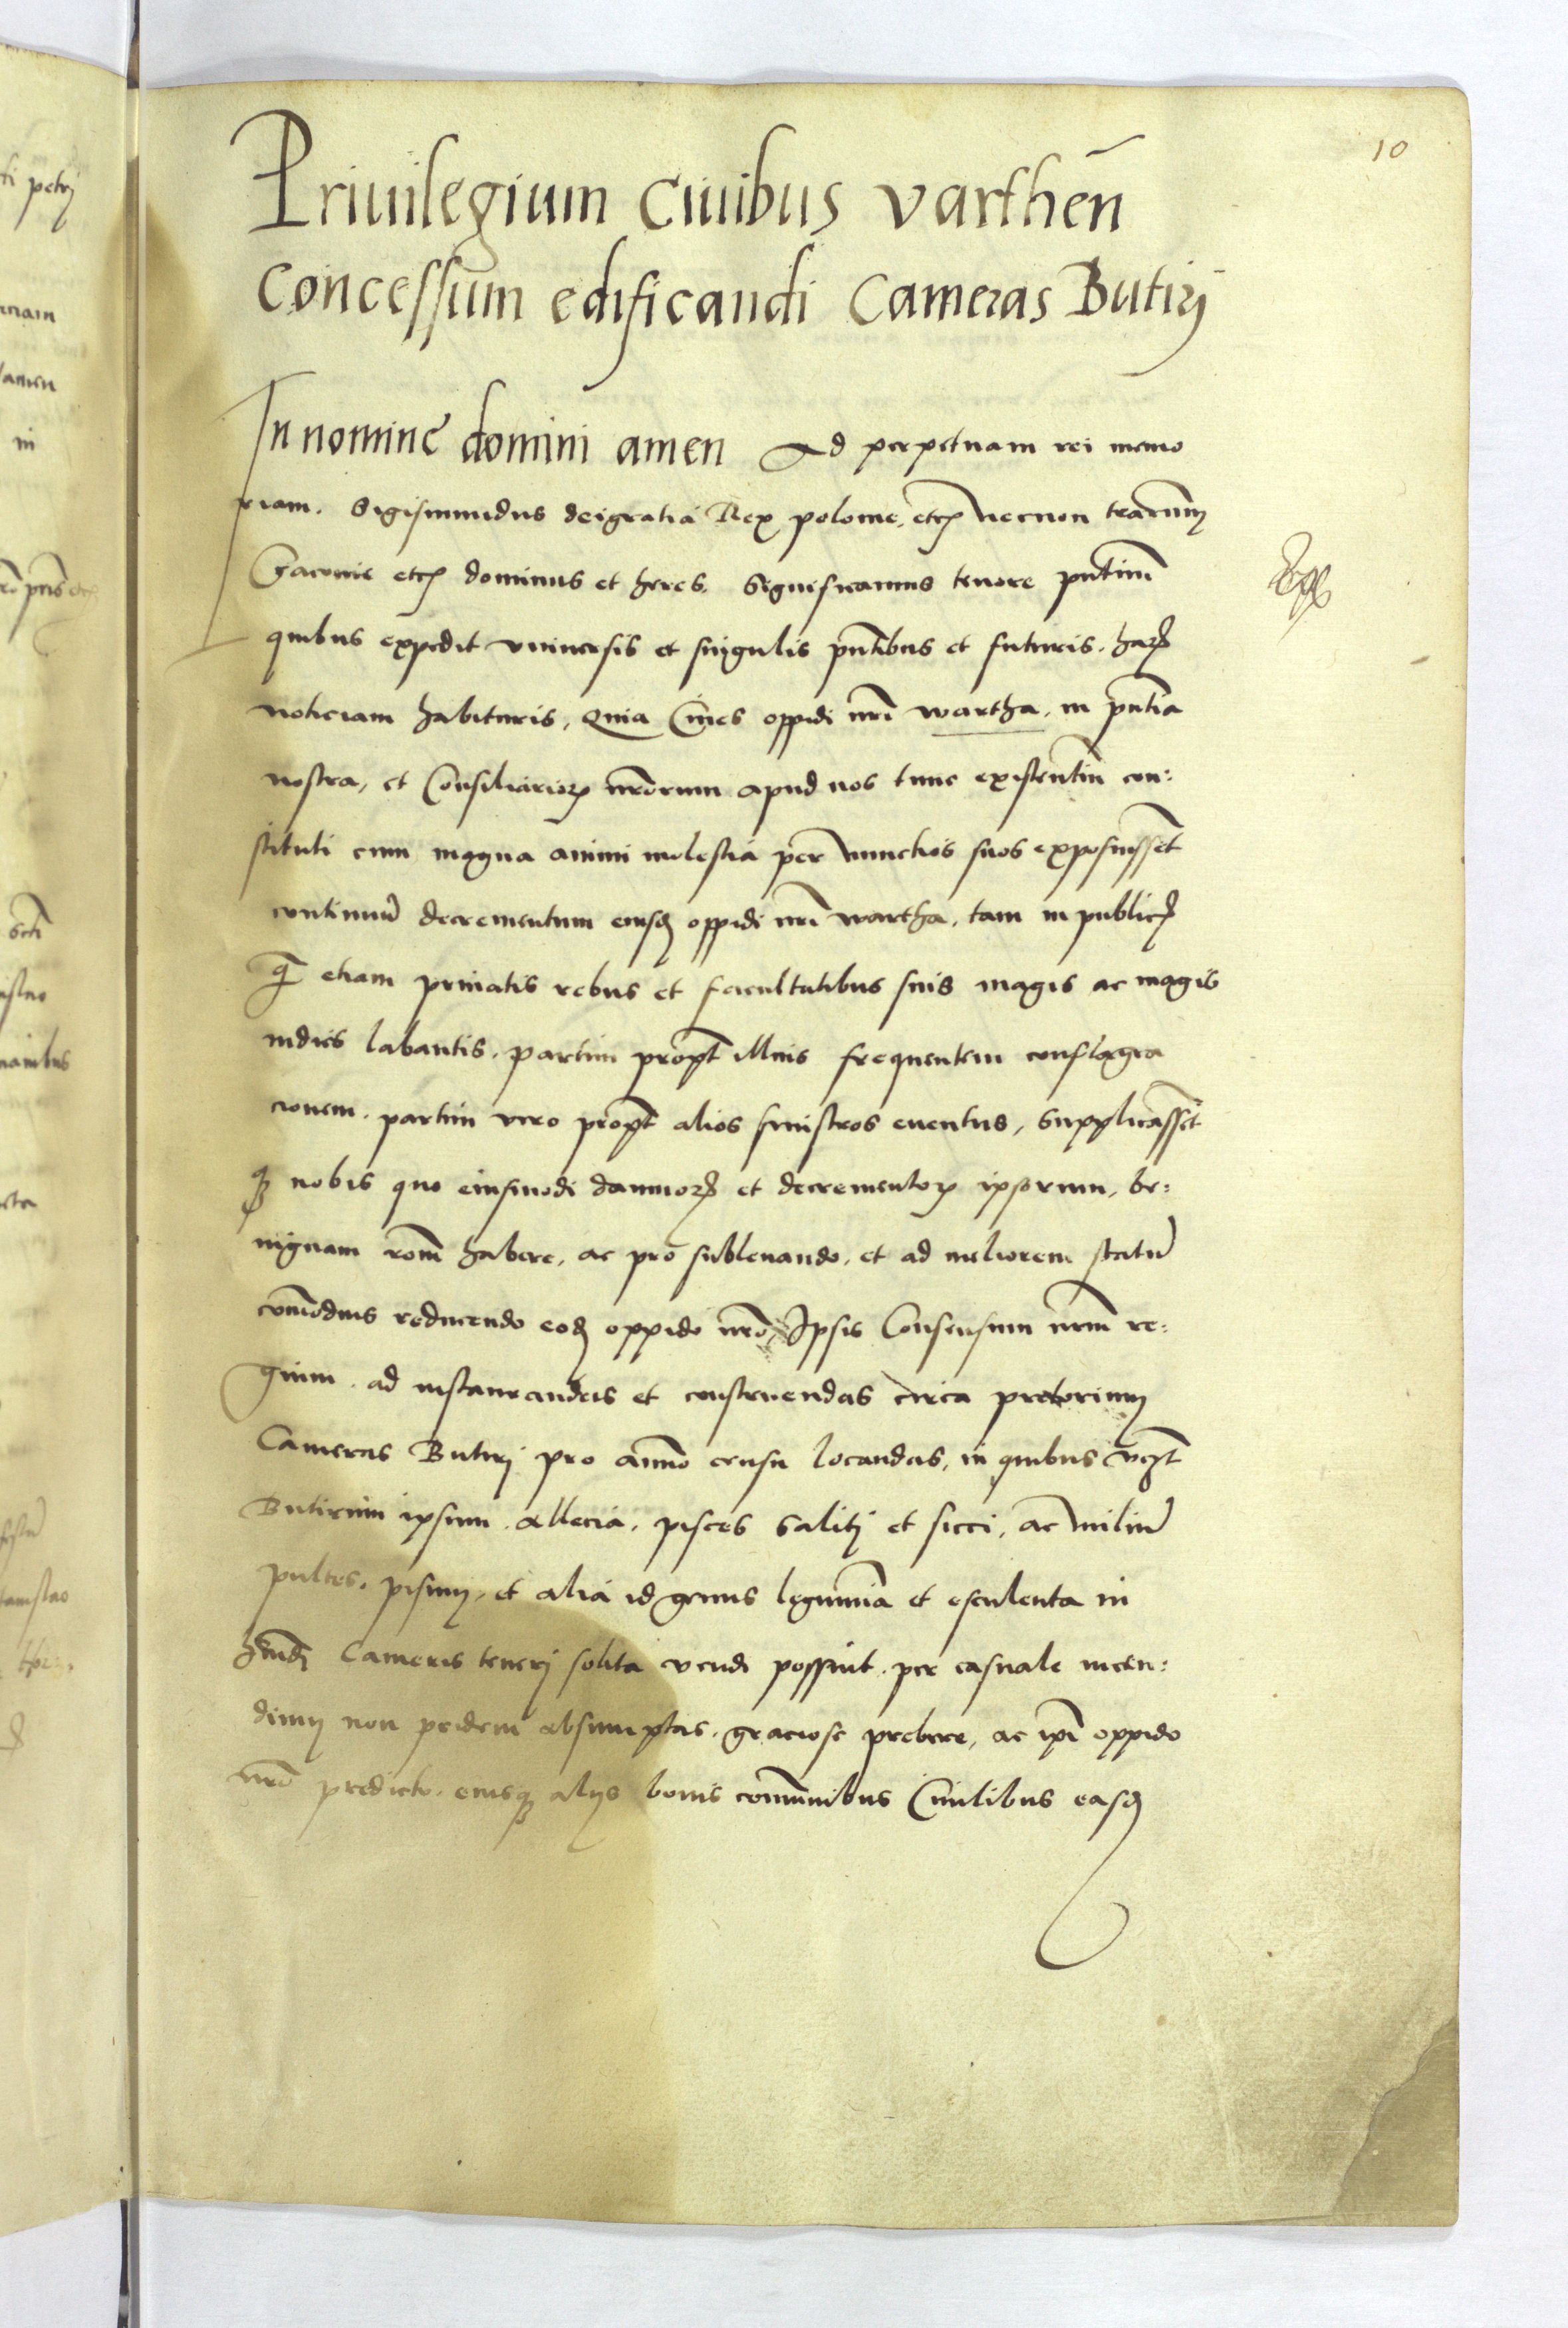 10
Priuilegium Ciuibus varthen̄
Concessum edificandi Cameras Butirj
In nomine domini amen Ad perpetuam rei memo
riam. Sigismundus dei gratia Rex polonie, etc̄ necnon terarum
Cracouie etc̄ dominus et heres. Significamus tenore pn̄tium
quibus expedit vniuersis et singulis pn̄tibus et futuris. har̄
noticiam habituris, Quia Ciues oppidi nr̄i wartha, in pn̄tia
nostra, et Consiliarior̄ nr̄orum apud nos tunc existentiū con:
stituti cum magna animi molestia per nunctios suos exposuissēt
continuū decrementum eiusd̄ oppidi nr̄i wartha, tam in publicis
q̄ etiam priuatis rebus et facultatibus suis magis ac magis
indies labantis, partim propt̄ illius frequentem conflagra
cionem, partim vero propt̄ alios sinistros euentus, supplicassēt
qꝫ nobis quo eiusmodi damnor̄ et decrementor̄ ipsorum, be:
nignam rōm̄ habere, ac pro subleuando, et ad meliorem statū
com̄odius reducendo eod̄ oppido nr̄o, Ipsis Consensum nr̄m re:
gium ad instaurandas et construendas circa pretorium
Cameras Butirj pro annuo censu locandas, in quibus vcz̄
Butirum ipsum, allecia, pisces salitj et sicci, ac miliū
pultes, pisum, et alia id genus legumīa et esculenta in
hm̄di Cameris tenerj solita vendi possint, per casuale incen:
dium non pridem absumptas, graciose prebere, ac ip̄i oppido
nr̄o predicto, eiusqꝫ alijs bonis com̄unibus Ciuilibus easd̄